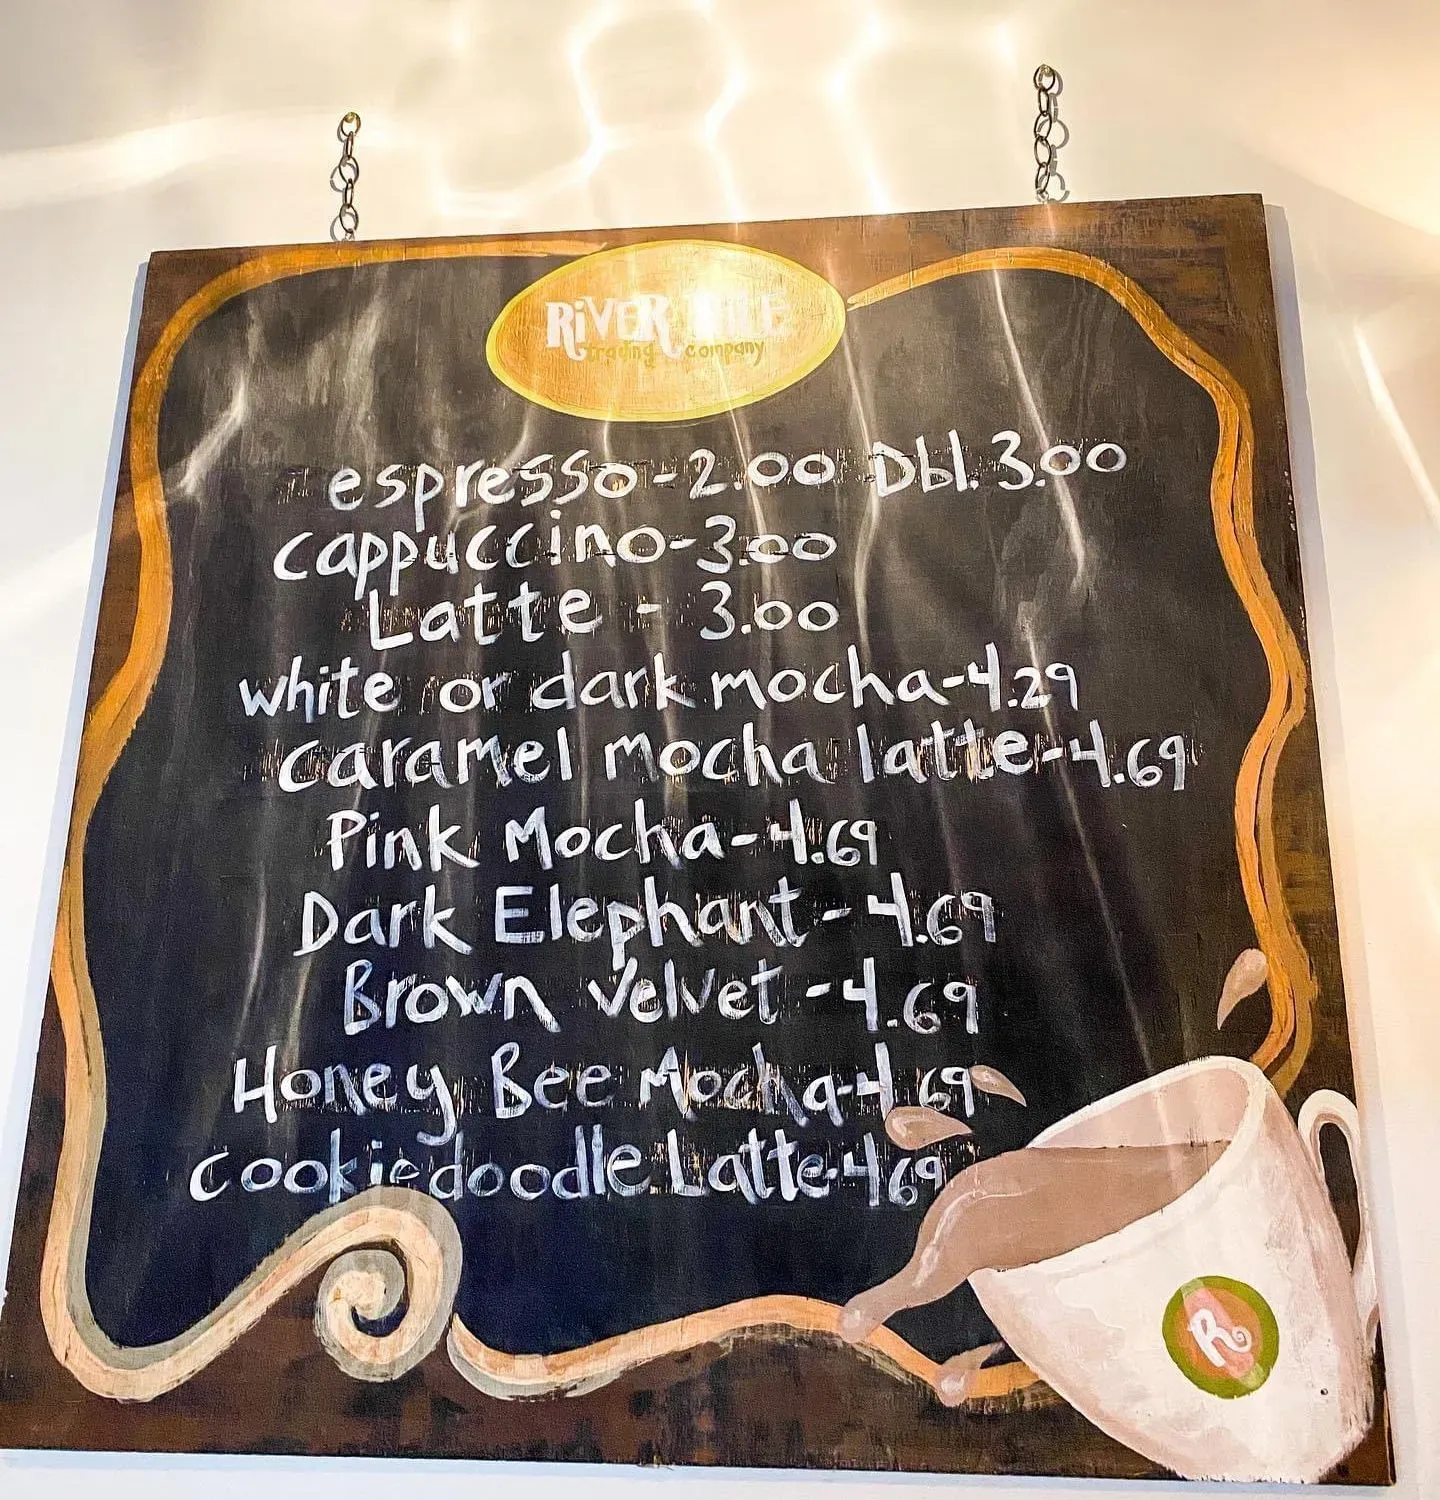 RiVER
trading company
espresso - 2.00 Dbl. 3.00
cappuccino - 3.00
Latte - 3.00
white or dark mocha - 4.29
caramel mocha latte - 4.69
Pink Mocha - 4.69
Dark Elephant - 4.69
Brown Velvet - 4.69
Honey Bee Mocha - 4.69
cookiedoodle Latte - 4.69
R